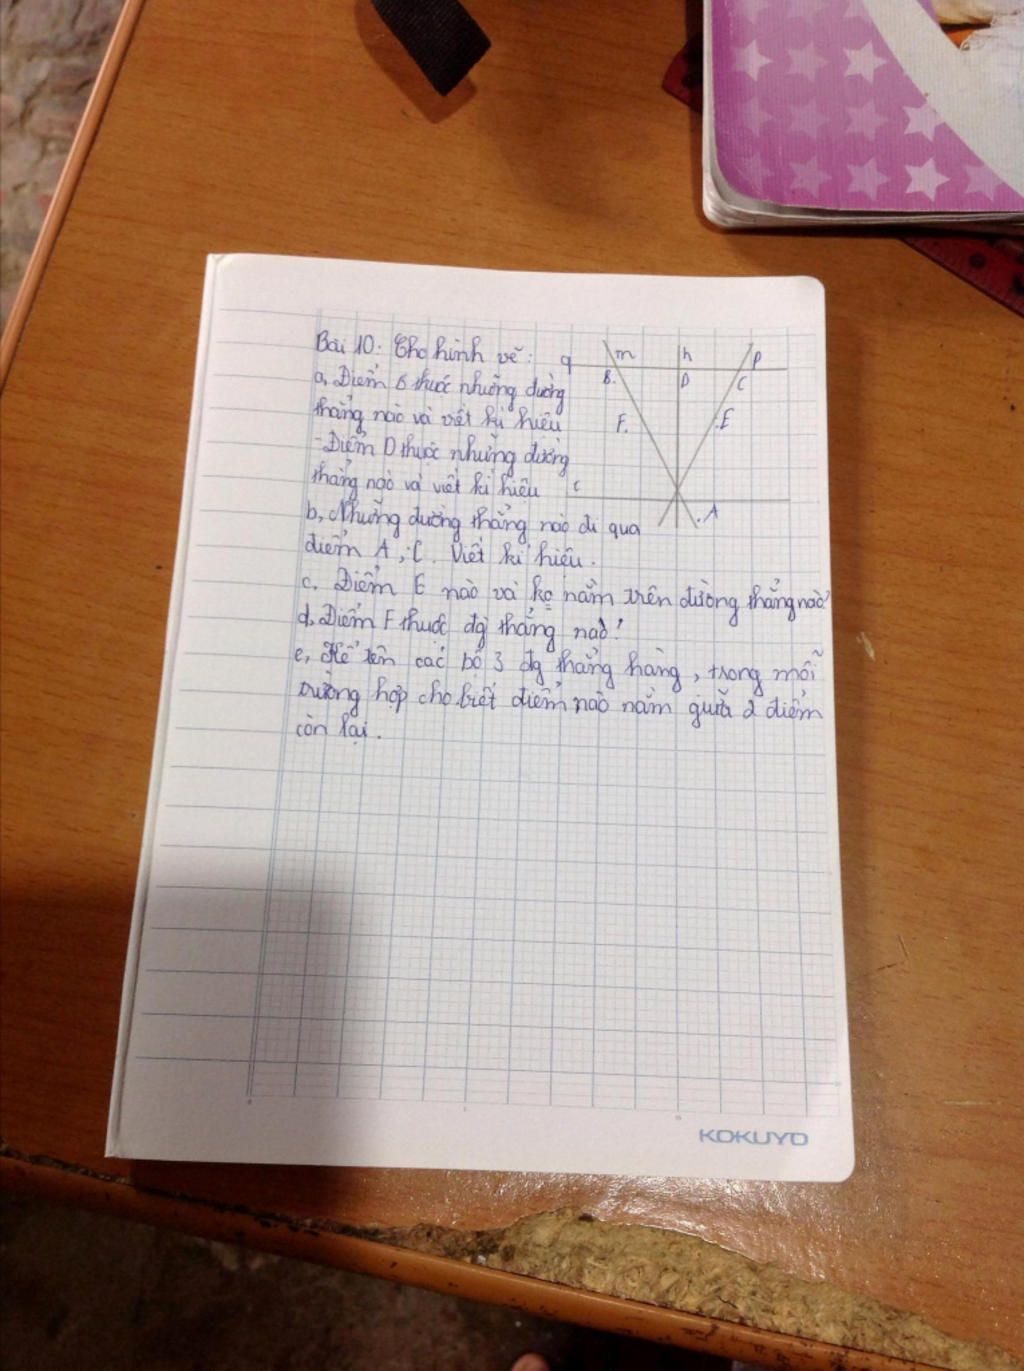 Bài 10: Cho hình vẽ:
q m h p
B. D C
F. .E
c
.A
a, Điểm B thuộc những đường
thẳng nào và viết kí hiệu
- Điểm D thuộc những đường
thẳng nào và viết kí hiệu
b, Những đường thẳng nào đi qua
điểm A, C. Viết kí hiệu.
c. Điểm E nào và ko nằm trên đường thẳng nào?
d, Điểm F thuộc đg thẳng nào?
e, Kể tên các bộ 3 đg thẳng hàng, trong mỗi
trường hợp cho biết điểm nào nằm giữa 2 điểm
còn lại.
KOKUYO